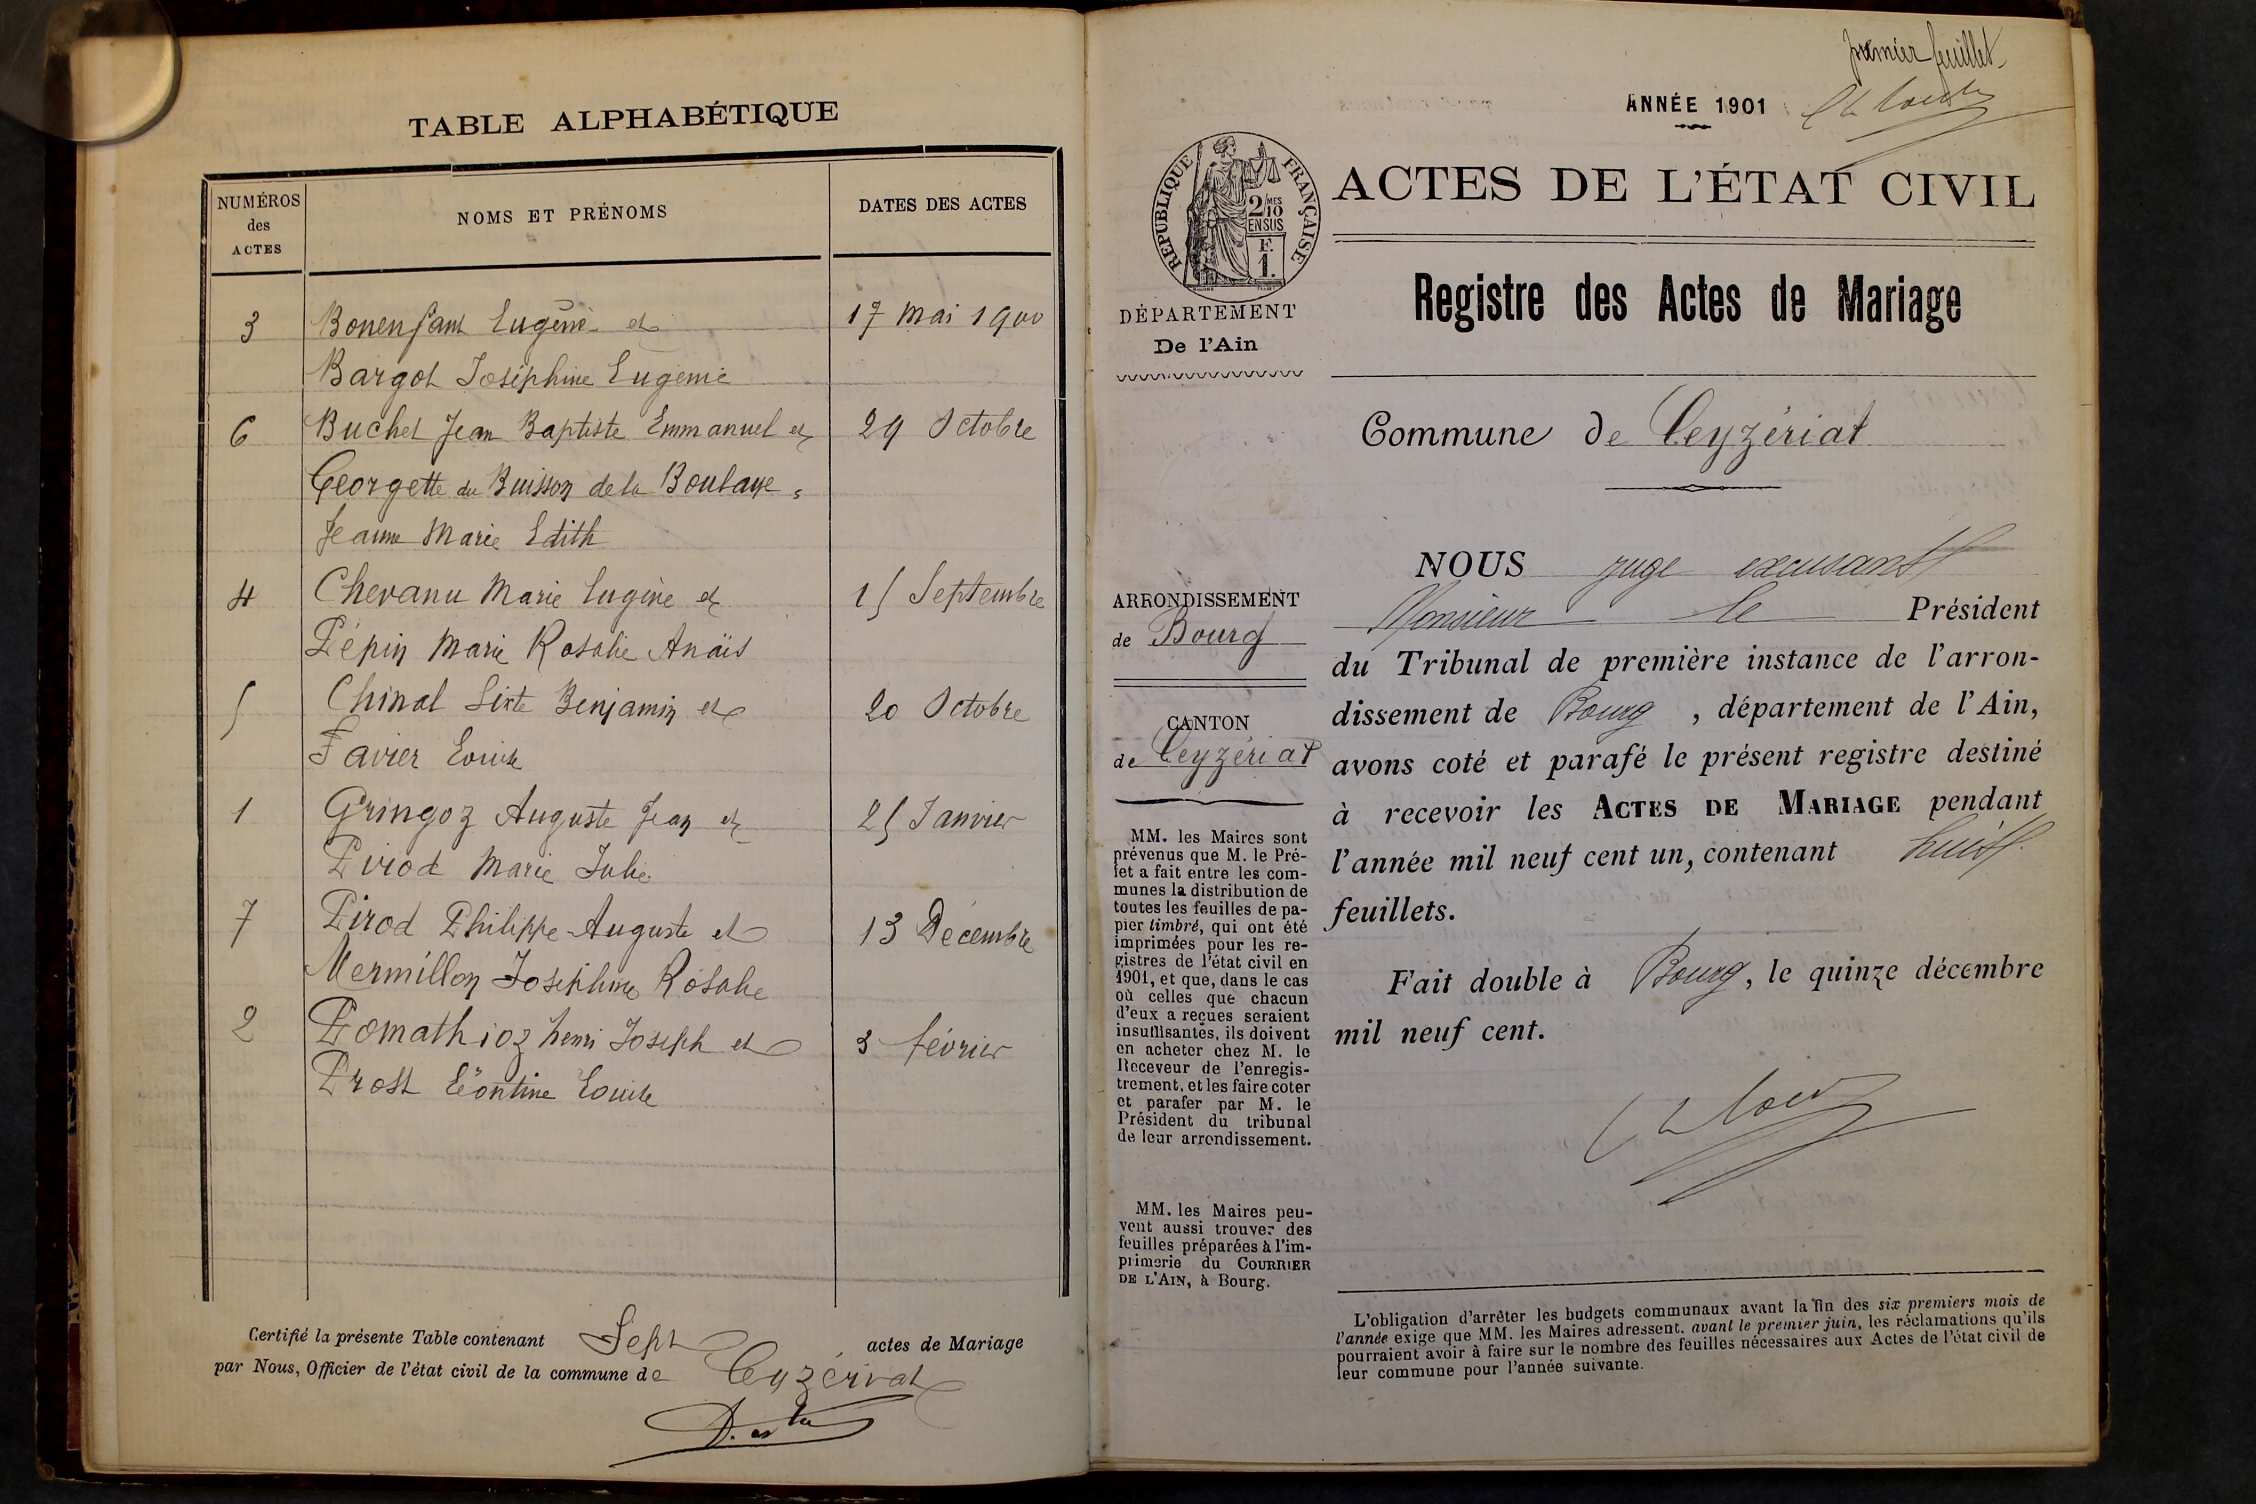 TABLE ALPHABÉTIQUE
NUMÉROS
des
ACTES
NOMS ET PRÉNOMS
DATES DES ACTES
3 Bonenfant Eugène et 17 Mai 1900
Bargot Joséphine Eugénie
6 Buchet Jean Baptiste Emmanuel et 29 Octobre
Georgette du Buisson de la Boulaye,
Jeanne Marie Edith
4 Chevanu Marie Eugène et 15 Septembre
Pépin Marie Rosalie Anaïs
5 Chinal Sixte Benjamin et 20 Octobre
Favier Louise
1 Gringoz Auguste Jean et 25 Janvier
Pirod Marie Julie
7 Pirod Philippe Auguste et 13 Décembre
Mermillon Joséphine Rosalie
2 Pomathioz henri Joseph et 3 février
Prost Léontine Louise
Certifié la présente Table contenant Sept actes de Mariage
par Nous, Officier de l'état civil de la commune de Ceyzériat
premier feuillet
ANNÉE 1901
RÉPUBLIQUE FRANÇAISE
2/10 MES
EN SUS
F.
1.
ACTES DE L'ÉTAT CIVIL
DÉPARTEMENT
De l'Ain
Registre des Actes de Mariage
Commune de Ceyzériat
ARRONDISSEMENT
de Bourg
CANTON
de Ceyzériat
MM. les Maires sont
prévenus que M. le Pré-
fet a fait entre les com-
munes la distribution de
toutes les feuilles de pa-
pier timbré, qui ont été
imprimées pour les re-
gistres de l'état civil en
1901, et que, dans le cas
où celles que chacun
d'eux a reçues seraient
insuffisantes, ils doivent
en acheter chez M. le
Receveur de l'enregis-
trement, et les faire coter
et parafer par M. le
Président du tribunal
de leur arrondissement.
MM. les Maires peu-
vent aussi trouver des
feuilles préparées à l'im-
primerie du COURRIER
DE L'AIN, à Bourg.
NOUS juge excusant
Monsieur le Président
du Tribunal de première instance de l'arron-
dissement de Bourg, département de l'Ain,
avons coté et parafé le présent registre destiné
à recevoir les ACTES DE MARIAGE pendant
l'année mil neuf cent un, contenant huit
feuillets.
Fait double à Bourg, le quinze décembre
mil neuf cent.
L'obligation d'arrêter les budgets communaux avant la fin des six premiers mois de
l'année exige que MM. les Maires adressent, avant le premier juin, les réclamations qu'ils
pourraient avoir à faire sur le nombre des feuilles nécessaires aux Actes de l'état civil de
leur commune pour l'année suivante.